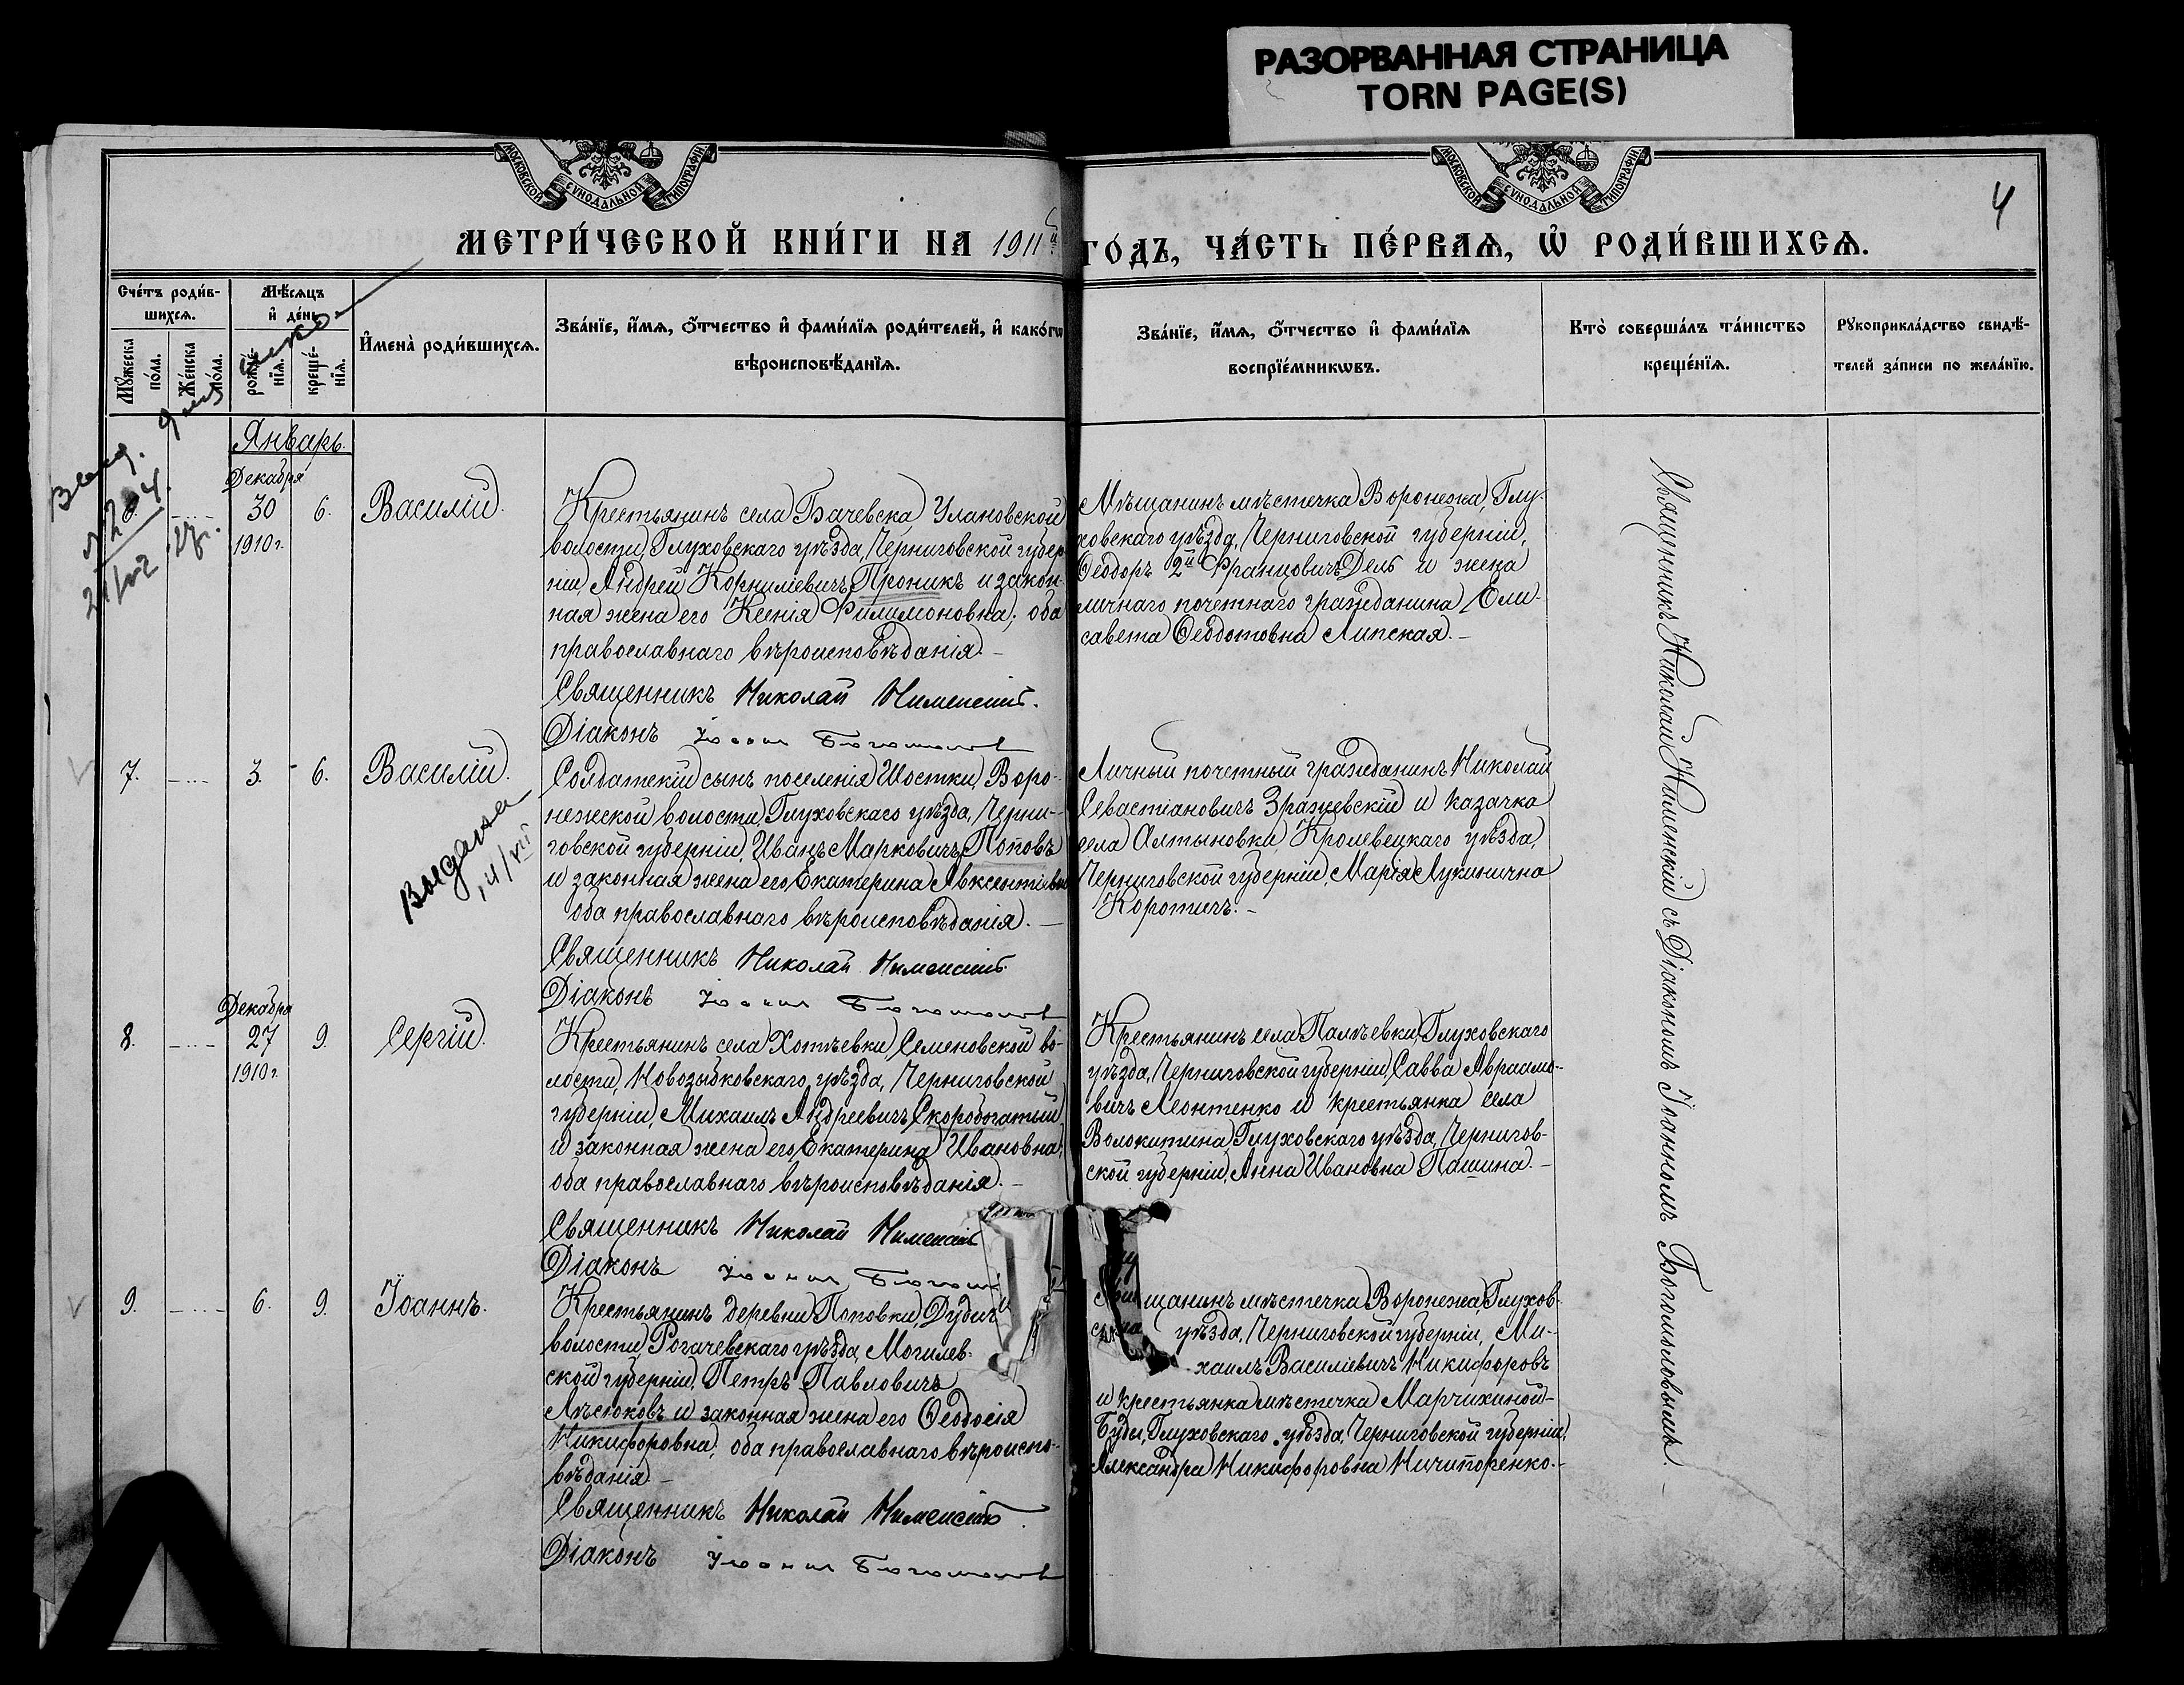 РАЗОРВАННАЯ СТРАНИЦА
TORN PAGE(S)
МОСКОВСКОЙ СУНОДАЛЬНОЙ ТИПОГРАФІИ
МОСКОВСКОЙ СУНОДАЛЬНОЙ ТИПОГРАФІИ
4
МЕТРИ́ЧЕСКОЙ КНИ́ГИ НА 1911й ГО́ДЪ, ЧА́СТЬ ПЕ́РВАѦ, Ѡ҆ РОДИ́ВШИХСѦ.
Сче́тъ роди́в-
шихсѧ.
Мѣ́сѧцъ
и҆ де́нь
Мꙋ́жеска по́ла.
Же́нска по́ла.
рожде́-
нїѧ.
креще́-
нїѧ.
И҆мена̀ роди́вшихсѧ.
Зва́нїе, и҆́мѧ, ѻ҆́тчество и҆ фами́лїѧ роди́телей, и҆ како́гѡ
вѣроисповѣ́данїѧ.
Зва́нїе, и҆́мѧ, ѻ҆́тчество и҆ фами́лїѧ
воспрїе́мникѡвъ.
Кто̀ соверша́лъ та́инство
креще́нїѧ.
Рꙋкоприкла́дство свидѣ́-
телей за́писи по жела́нїю.
Январь.
Декабря
30 6. Василій.
1910 г.
Крестьянинъ села Бачевска, Улановской
волости, Глуховскаго уѣзда, Черниговской губер-
ніи, Андрей Корниліевичъ Проникъ и закон-
ная жена его Ксенія Филимоновна; оба
православнаго вѣроисповѣданія.
Священникъ Николай Нименскій.
Діаконъ Іоаннъ Богомоловъ
Мѣщанинъ мѣстечка Воронежа, Глу-
ховскаго уѣзда, Черниговской губерніи,
Ѳеодоръ 2й Францовичъ Дель и жена
личнаго почетнаго гражданина Ели-
савета Ѳеодотовна Липская.
7. 3. 6. Василій.
Выдана
Солдатскій сынъ поселенія Шостки, Воро-
нежской волости, Глуховскаго уѣзда, Черни-
говской губерніи, Иванъ Марковичъ Поповъ
и законная жена его Екатерина Авксентіевна
оба православнаго вѣроисповѣданія.
Священникъ Николай Нименскій.
Діаконъ Іоаннъ Богомоловъ
Личный почетный гражданинъ Николай
Севастіановичъ Зражевскій и казачка
села Алтыновки, Кролевецкаго уѣзда,
Черниговской губерніи, Марія Лукинична
Коротичъ.
8. Декабря 27 9. Сергій.
1910 г.
Крестьянинъ села Хотѣевки, Семеновской во-
лости, Новозыбковскаго уѣзда, Черниговской
губерніи, Михаилъ Андреевичъ Скоробогатый
и законная жена его Екатерина Ивановна;
оба православнаго вѣроисповѣданія.
Священникъ Николай Нименскій
Діаконъ Іоаннъ
Крестьянинъ села Палѣевки, Глуховскаго
уѣзда, Черниговской губерніи, Савва Авраамо-
вичъ Леонтенко и крестьянка села
Волокитина, Глуховскаго уѣзда, Чернигов-
ской губерніи, Анна Ивановна Пашина.
9. 6. 9. Іоаннъ.
Крестьянинъ деревни Поповки,
волости, Рогачевскаго уѣзда, Могилев-
ской губерніи, Петръ Павловичъ
Лѣсюковъ и законная жена его Ѳеодосія
Никифоровна; оба православнаго вѣроиспо-
вѣданія.
Священникъ Николай Нименскій
Діаконъ Іоаннъ Богомоловъ
щанинъ мѣстечка Воронежа, Глухов-
уѣзда, Черниговской губерніи, Ми-
хаилъ Василіевичъ Никифоровъ
и крестьянка мѣстечка Марчихиной-
Буды, Глуховскаго уѣзда, Черниговской губерніи,
Александра Никифоровна Ничипоренко.
Священникъ Николай Нименскій съ Діакономъ Іоанномъ Богомоловымъ.